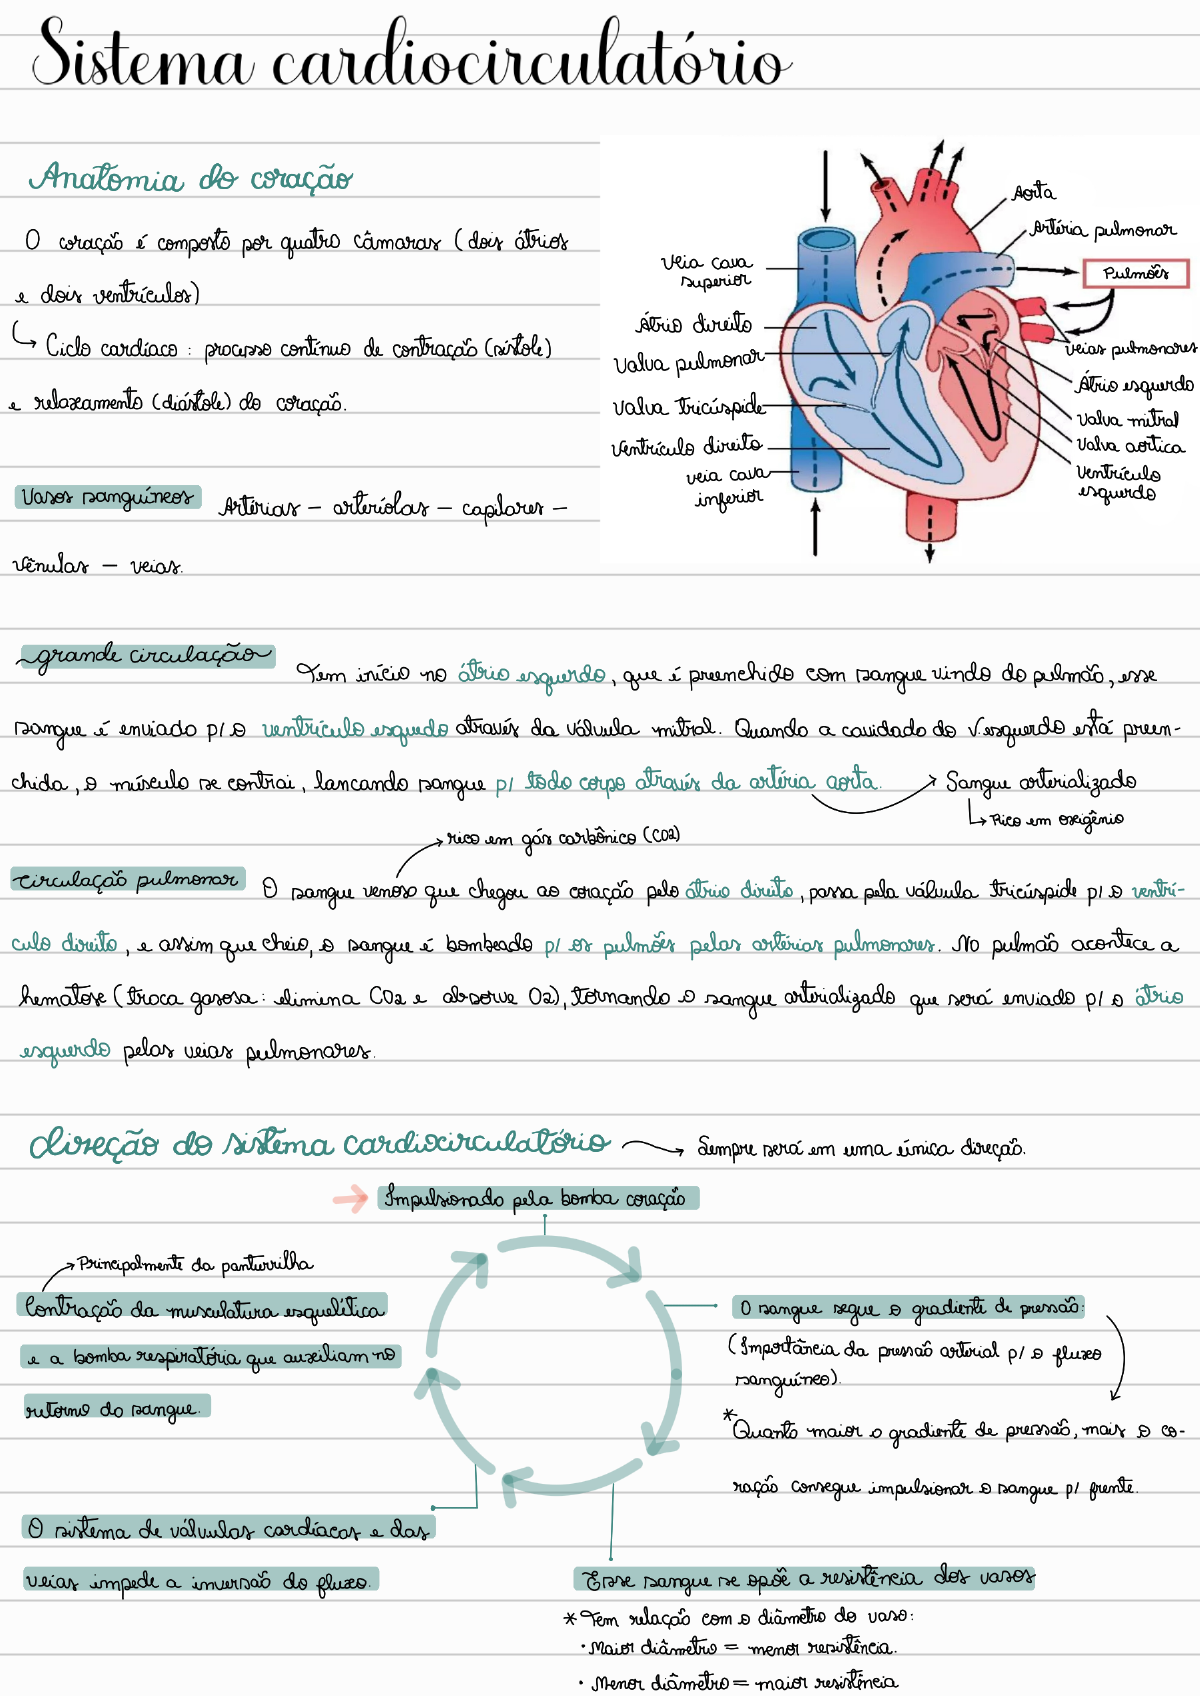 Sistema cardiocirculatório
Anatomia do coração
O coração é composto por quatro câmaras (dois átrios
e dois ventrículos)
Ciclo cardíaco : processo contínuo de contração (sístole)
e relaxamento (diástole) do coração.
Vasos sanguíneos Artérias – arteríolas – capilares –
vênulas – veias.
Aorta
Artéria pulmonar
Pulmões
veias pulmonares
Átrio esquerdo
Valva mitral
Valva aortica
Ventrículo
esquerdo
Veia cava
superior
Átrio direito
Valva pulmonar
Valva tricúspide
Ventrículo direito
veia cava
inferior
grande circulação Tem início no átrio esquerdo, que é preenchido com sangue vindo do pulmão, esse
sangue é enviado p/ o ventrículo esquedo através da válvula mitral. Quando a cavidade do V.esquerdo está preen-
chida, o músculo se contrai, lancando sangue p/ todo corpo através da artéria aorta. Sangue arterializado
Rico em oxigênio
rico em gás carbônico (CO2)
circulação pulmonar O sangue venoso que chegou ao coração pelo átrio direito, passa pela válvula tricúspide p/ o ventrí-
culo direito, e assim que cheio, o sangue é bombeado p/ os pulmões pelas artérias pulmonares. No pulmão acontece a
hematose (troca gasosa: elimina CO2 e absorve O2), tornando o sangue arterializado que será enviado p/ o átrio
esquerdo pelas veias pulmonares.
direção do sistema cardiocirculatório Sempre será em uma única direção.
Impulsionado pela bomba coração
Principalmente da panturrilha
Contração da musculatura esquelítica
e a bomba respiratória que auxiliam no
retorno do sangue.
O sangue segue o gradiente de pressão:
(Importância da pressão arterial p/ o fluxo
sanguíneo).
*Quanto maior o gradiente de pressão, mais o co-
ração consegue impulsionar o sangue p/ frente.
O sistema de válvulas cardíacas e das
veias impede a inversão do fluxo.
Esse sangue se opõe a resistência dos vasos
* Tem relação com o diâmetro do vaso:
· Maior diâmetro = menor resistência.
· Menor diâmetro = maior resistência